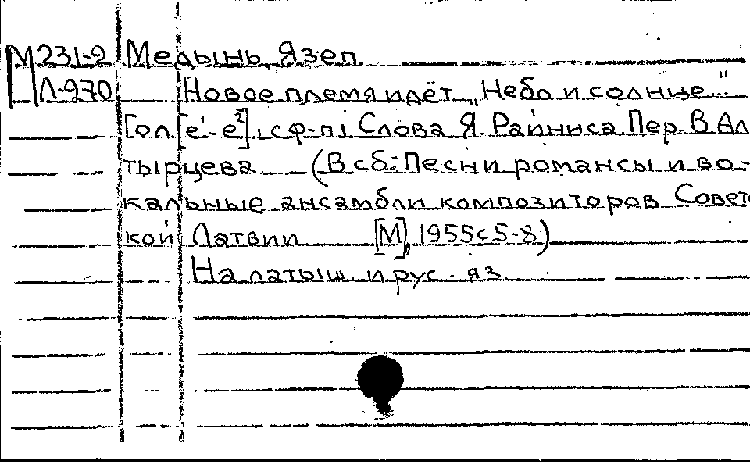 М231-2 Медынь, Язеп
Л-970 Новое племя идёт „Небо и солнце"
[ол[е'-е²], с ф-п] Слова Я. Райниса Пер. В. Ал
тырцева (В сб.: Песни романсы и во-
кальные ансамбли композиторов Совет
кой Латвии [М], 1955 с 5-8)
На латыш. и рус. яз.